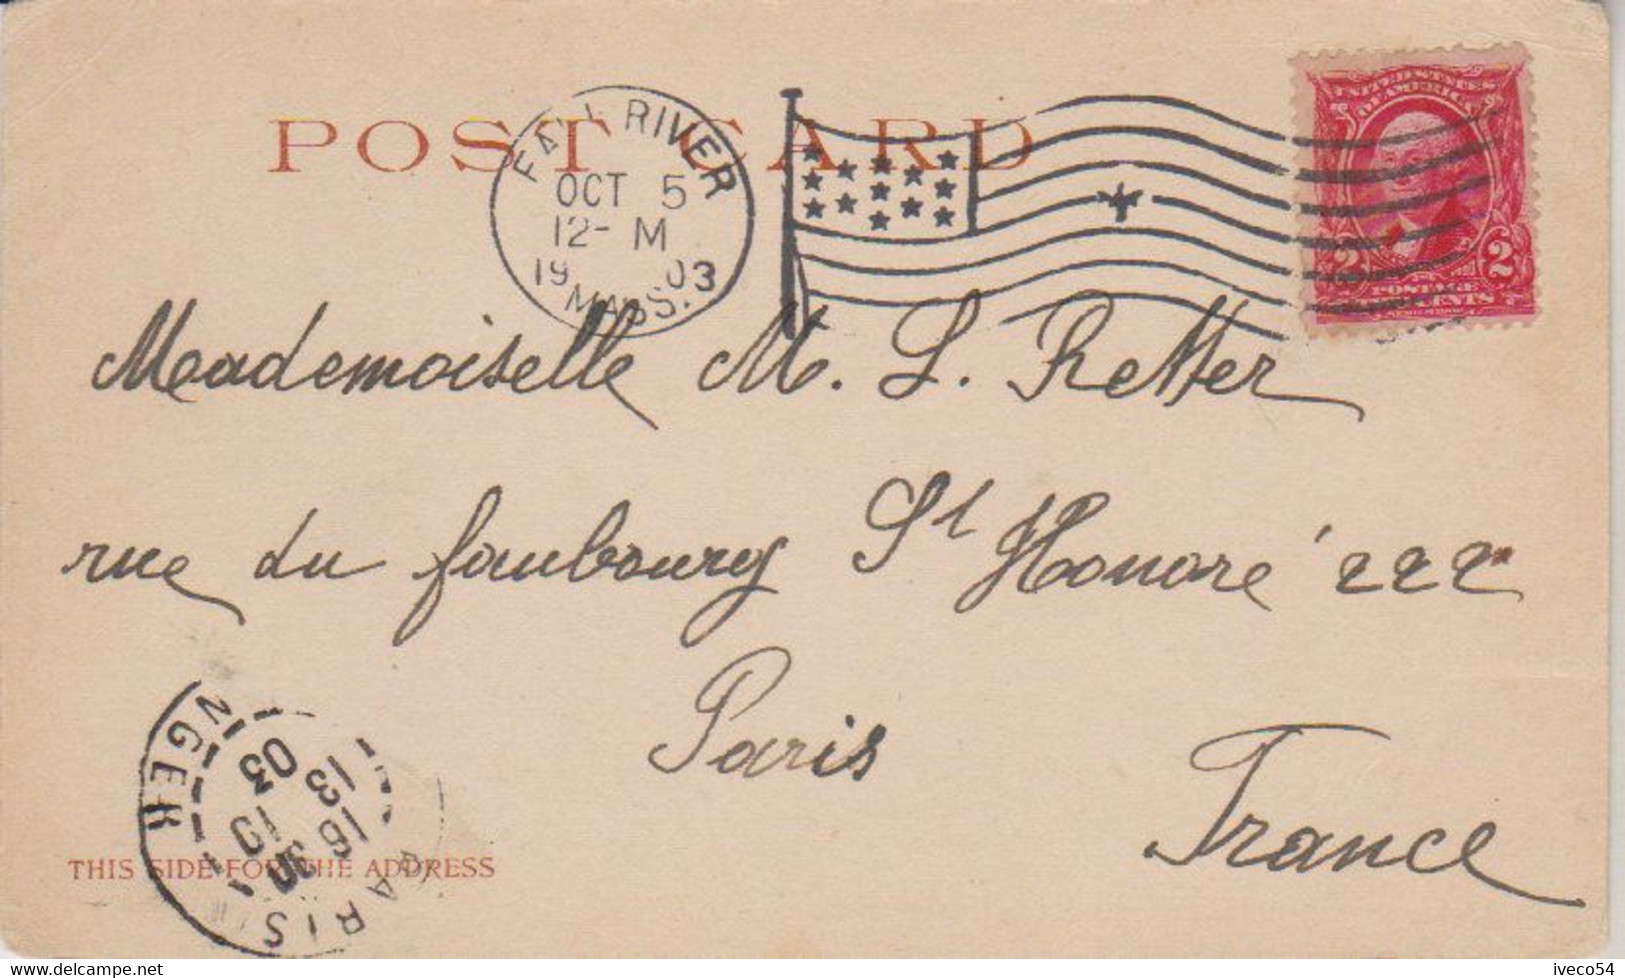 POST CARD
FALL RIVER
OCT 5
12- M
19 03
MASS.
UNITED STATES
OF AMERICA
2 2
POSTAGE
CENTS
Mademoiselle M. L. Retter
rue du faubourg St Honoré 222
Paris
France
THIS SIDE FOR THE ADDRESS
PARIS
13
16
19
03
www.delcampe.net
iveco54